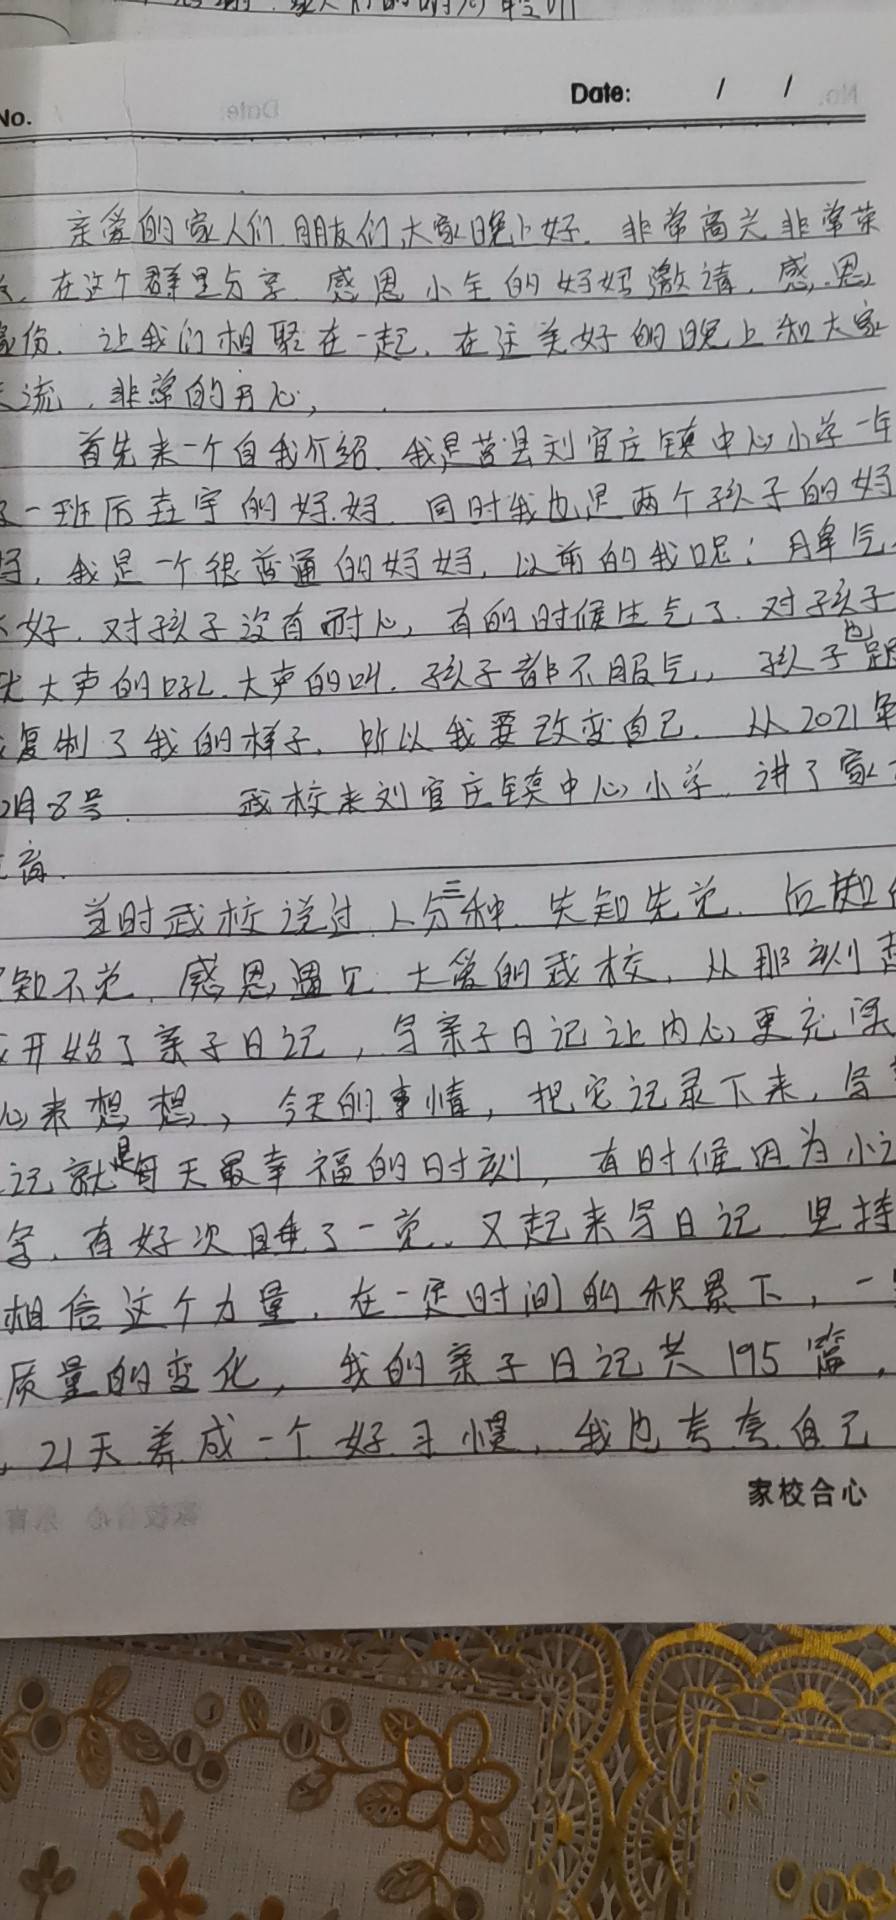 No. Date: / /
亲爱的家人们朋友们大家晚上好. 非常高兴非常荣
，在这个群里分享. 感恩小全的妈妈邀请, 感恩
家俊. 让我们相聚在一起, 在这美好的晚上和大家
流, 非常的开心,
首先来一个自我介绍. 我是莒县刘官庄镇中心小学一年
一班厉垚宇的妈妈. 同时我也是两个孩子的妈
妈, 我是一个很普通的妈妈, 以前的我呢; 脾气
不好. 对孩子没有耐心, 有的时候生气了. 对孩子
大声的吼. 大声的叫. 孩子都不服气, 孩子也跟
复制了我的样子, 所以我要改变自己. 从2021年
2月8号. 武校来刘官庄镇中心小学. 讲了家
育.
当时武校说过, 人分三种. 先知先觉. 后知
知不觉, 感恩遇见大爱的武校, 从那刻起
开始了亲子日记, 写亲子日记让内心更充实
心来想想, 今天的事情, 把它记录下来, 写
记就是每天最幸福的时刻, 有时候因为小
写, 有好次睡了一觉, 又起来写日记. 坚持
相信这个力量, 在一定时间的积累下, 一
质量的变化, 我的亲子日记共195篇,
, 21天养成一个好习惯, 我也夸夸自己
家校合心